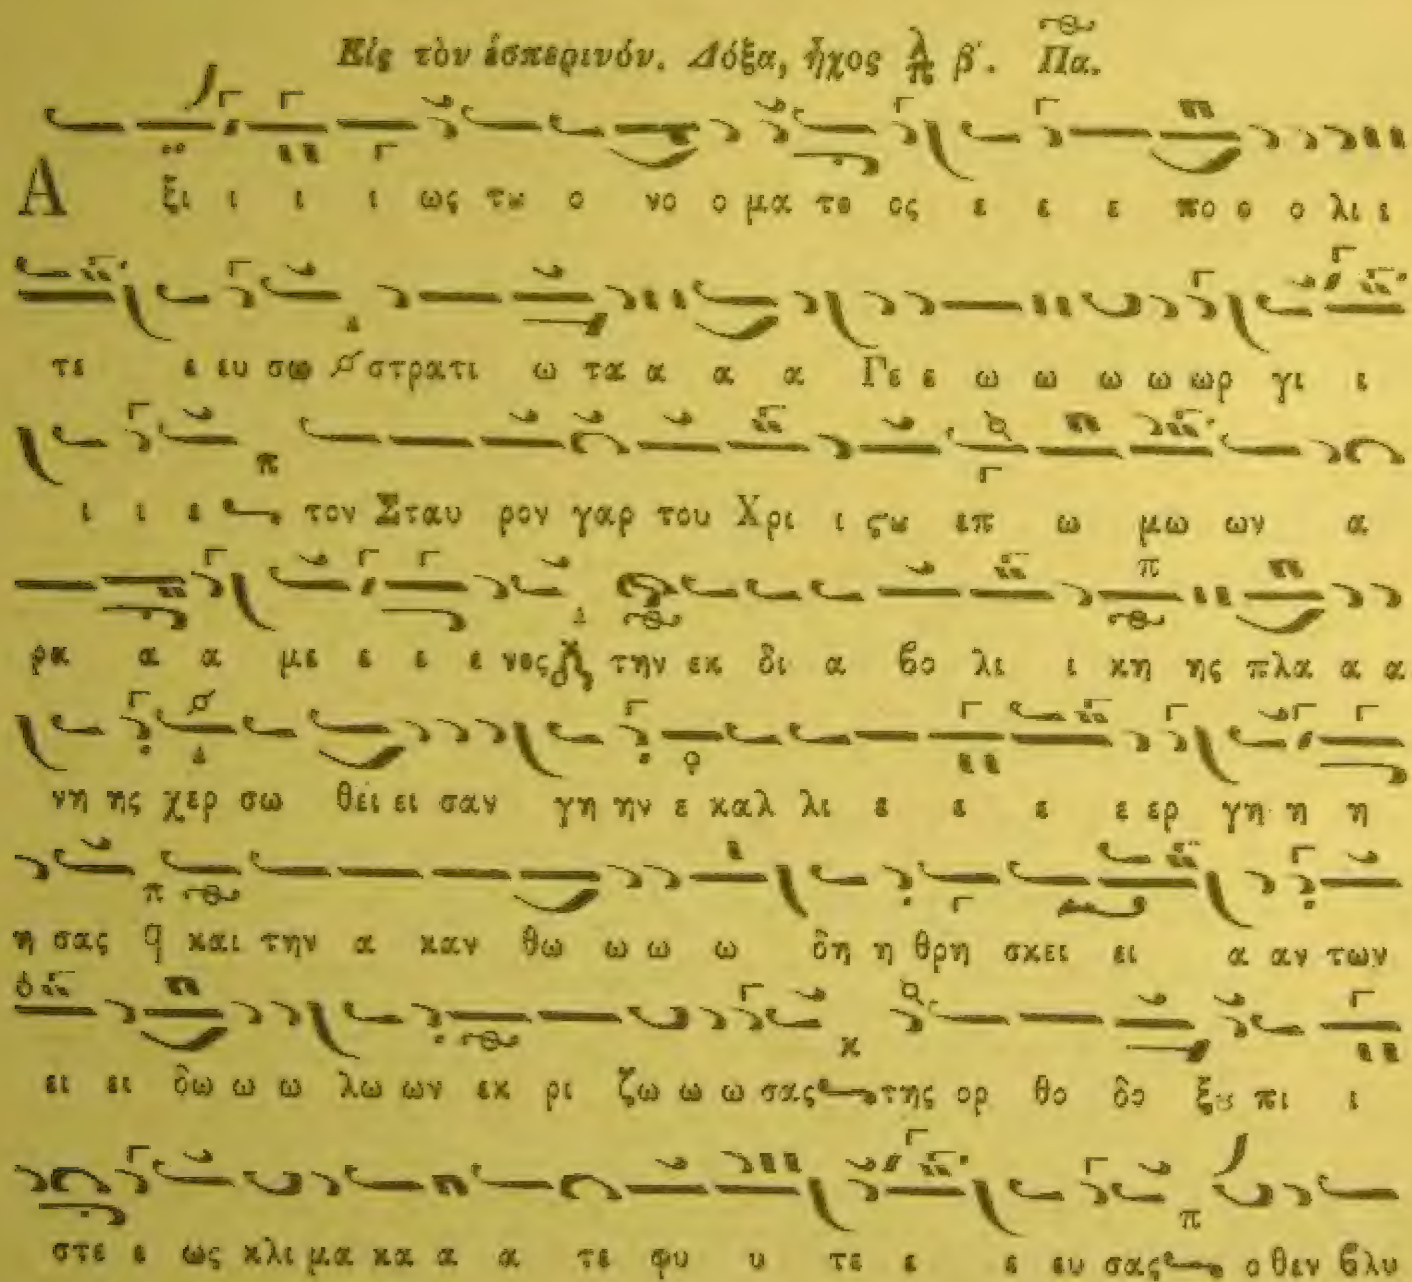 Εἰς τὸν ἑσπερινόν. Δόξα, ἦχος λ π β΄. Πα.
Α ξι ι ι ι ως τω ο νο ο μα το ος ε ε ε πο ο ο λι ι
τε ε ευ σω στρατι ω τα α α α Γε ε ω ω ω ω ωρ γι ι
ι ι ε τον Σταυ ρον γαρ του Χρι ι ςω επ ω μω ων α
ρα α α με ε ε ε νος την εκ δι α βο λι ι κη ης πλα α α
νη ης χερ σω θει ει σαν γη ην ε καλ λι ε ε ε ε ερ γη η η
η σας και την α καν θω ω ω ω δη η θρη σκει ει α αν των
ει ει δω ω ω λω ων εκ ρι ζω ω ω σας της ορ θο δο ξου πι ι
στε ε ως κλι μα κα α α τε φυ υ τε ε ε ευ σας ο θεν βλυ